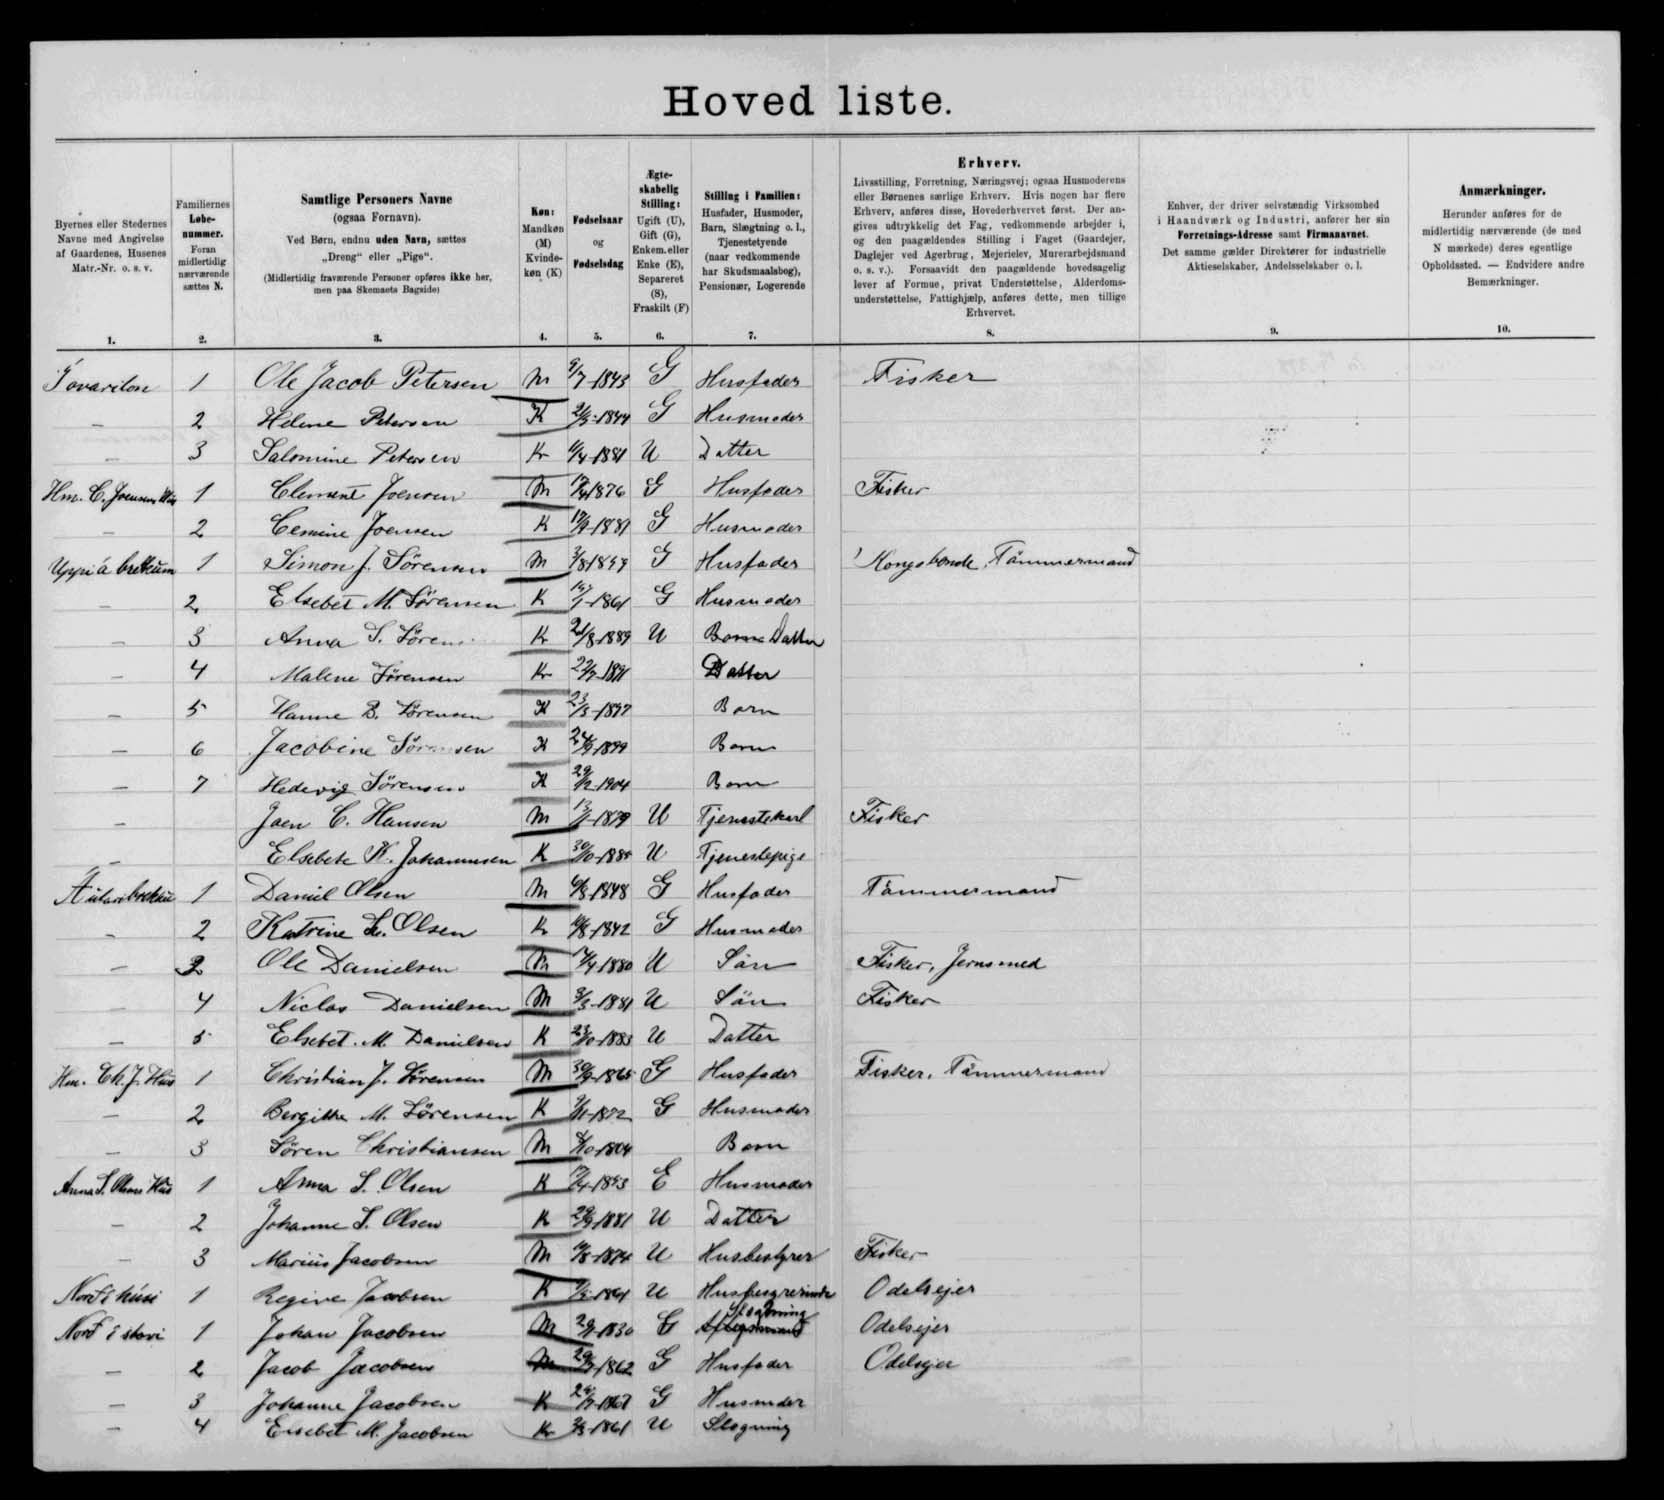 Hovedliste.
Byernes eller Stedernes Navne med Angivelse af Gaardenes, Husenes Matr.-Nr. o. s. v.
1.
Familiernes Løbenummer. Foran midlertidig nærværende sættes N.
2.
Samtlige Personers Navne
(ogsaa Fornavn).
Ved Børn, endnu uden Navn, sættes
„Dreng“ eller „Pige“.
(Midlertidig fraværende Personer opføres ikke her,
men paa Skemaets Bagside)
3.
Køn:
Mandkøn (M)
Kvindekøn (K)
4.
Fødselsaar
og
Fødselsdag
5.
Ægteskabelig Stilling:
Ugift (U), Gift (G), Enkem. eller Enke (E), Separeret (S), Fraskilt (F)
6.
Stilling i Familien:
Husfader, Husmoder, Barn, Slægtning o. l., Tjenestetyende (naar vedkommende har Skudsmaalsbog), Pensionær, Logerende
7.
Erhverv.
Livsstilling, Forretning, Næringsvej; ogsaa Husmoderens
eller Børnenes særlige Erhverv. Hvis nogen har flere
Erhverv, anføres disse, Hovederhvervet først. Der an-
gives udtrykkelig det Fag, vedkommende arbejder i,
og den paagældendes Stilling i Faget (Gaardejer,
Daglejer ved Agerbrug, Mejerielev, Murerarbejdsmand
o. s. v.). Forsaavidt den paagældende hovedsagelig
lever af Formue, privat Understøttelse, Alderdoms-
understøttelse, Fattighjælp, anføres dette, men tillige
Erhvervet.
8.
Enhver, der driver selvstændig Virksomhed
i Haandværk og Industri, anfører her sin
Forretnings-Adresse samt Firmanavnet.
Det samme gælder Direktører for industrielle
Aktieselskaber, Andelsselskaber o. l.
9.
Anmærkninger.
Herunder anføres for de
midlertidig nærværende (de med
N mærkede) deres egentlige
Opholdssted. — Endvidere andre
Bemærkninger.
10.
1 Ole Jacob Petersen M 9/7-1843 G Husfader Fisker
– 2 Helene Petersen K 1844 G Husmoder
– 3 Salomine Petersen K 1881 U Datter
Hm. C. Joensens Hus 1 Clement Joensen M 1876 G Husfader Fisker
– 2 Joensen K 17/9-1881 G Husmoder
Uppi á brekkum 1 Simon J. Sørensen M G Husfader Kongsbonde, Tømmermand
– 2 Elsebet M. Sørensen K 1861 G Husmoder
– 3 Anna S. Søren K 21/8-1889 U Datter
– 4 Malene Sørensen K 1891 Datter
– 5 Hanne B. Sørensen K 23/3-1897 Barn
– 6 Jacobine Sørensen K 24/9-1899 Barn
– 7 Hedevig Sørensen K 29/2-1904 Barn
– Joen C. Hansen M 1879 U Tjenestekarl Fisker
– Elsebete K. Johannesen K 30/10-1885 U Tjenestepige
1 Daniel Olsen M 1848 G Husfader Tømmermand
– 2 Katrine Olsen K 1842 G Husmoder
– 3 Ole Danielsen M 1880 U Søn Fisker, Jernsmed
– 4 Niclas Danielsen M 1881 U Søn Fisker
– 5 Elsebet. M. Danielsen K 23/10-1883 U Datter
Hm. Ch. J. Hus 1 Christian J. Sørensen M 30/9-1865 G Husfader Fisker, Tømmermand
– 2 Bergitte M. Sørensen K 1872 G Husmoder
– 3 Søren Christiansen M Barn
Anna S. Olsens Hus 1 Anna S. Olsen K E Husmoder
– 2 Johanne S. Olsen K 29/9-1881 U Datter
– 3 Marius Jacobsen M 1874 U Husbestyrer Fisker
Norð í húsi 1 Regine Jacobsen K U Odelsejer
Norð í stovi 1 Johan Jacobsen M 1830 Slægtning Odelsejer
– 2 Jacob Jacobsen M 1862 G Husfader Odelsejer
– 3 Johanne Jacobsen K G Husmoder
– 4 Elsebet M. Jacobsen K 1861 U Slægtning